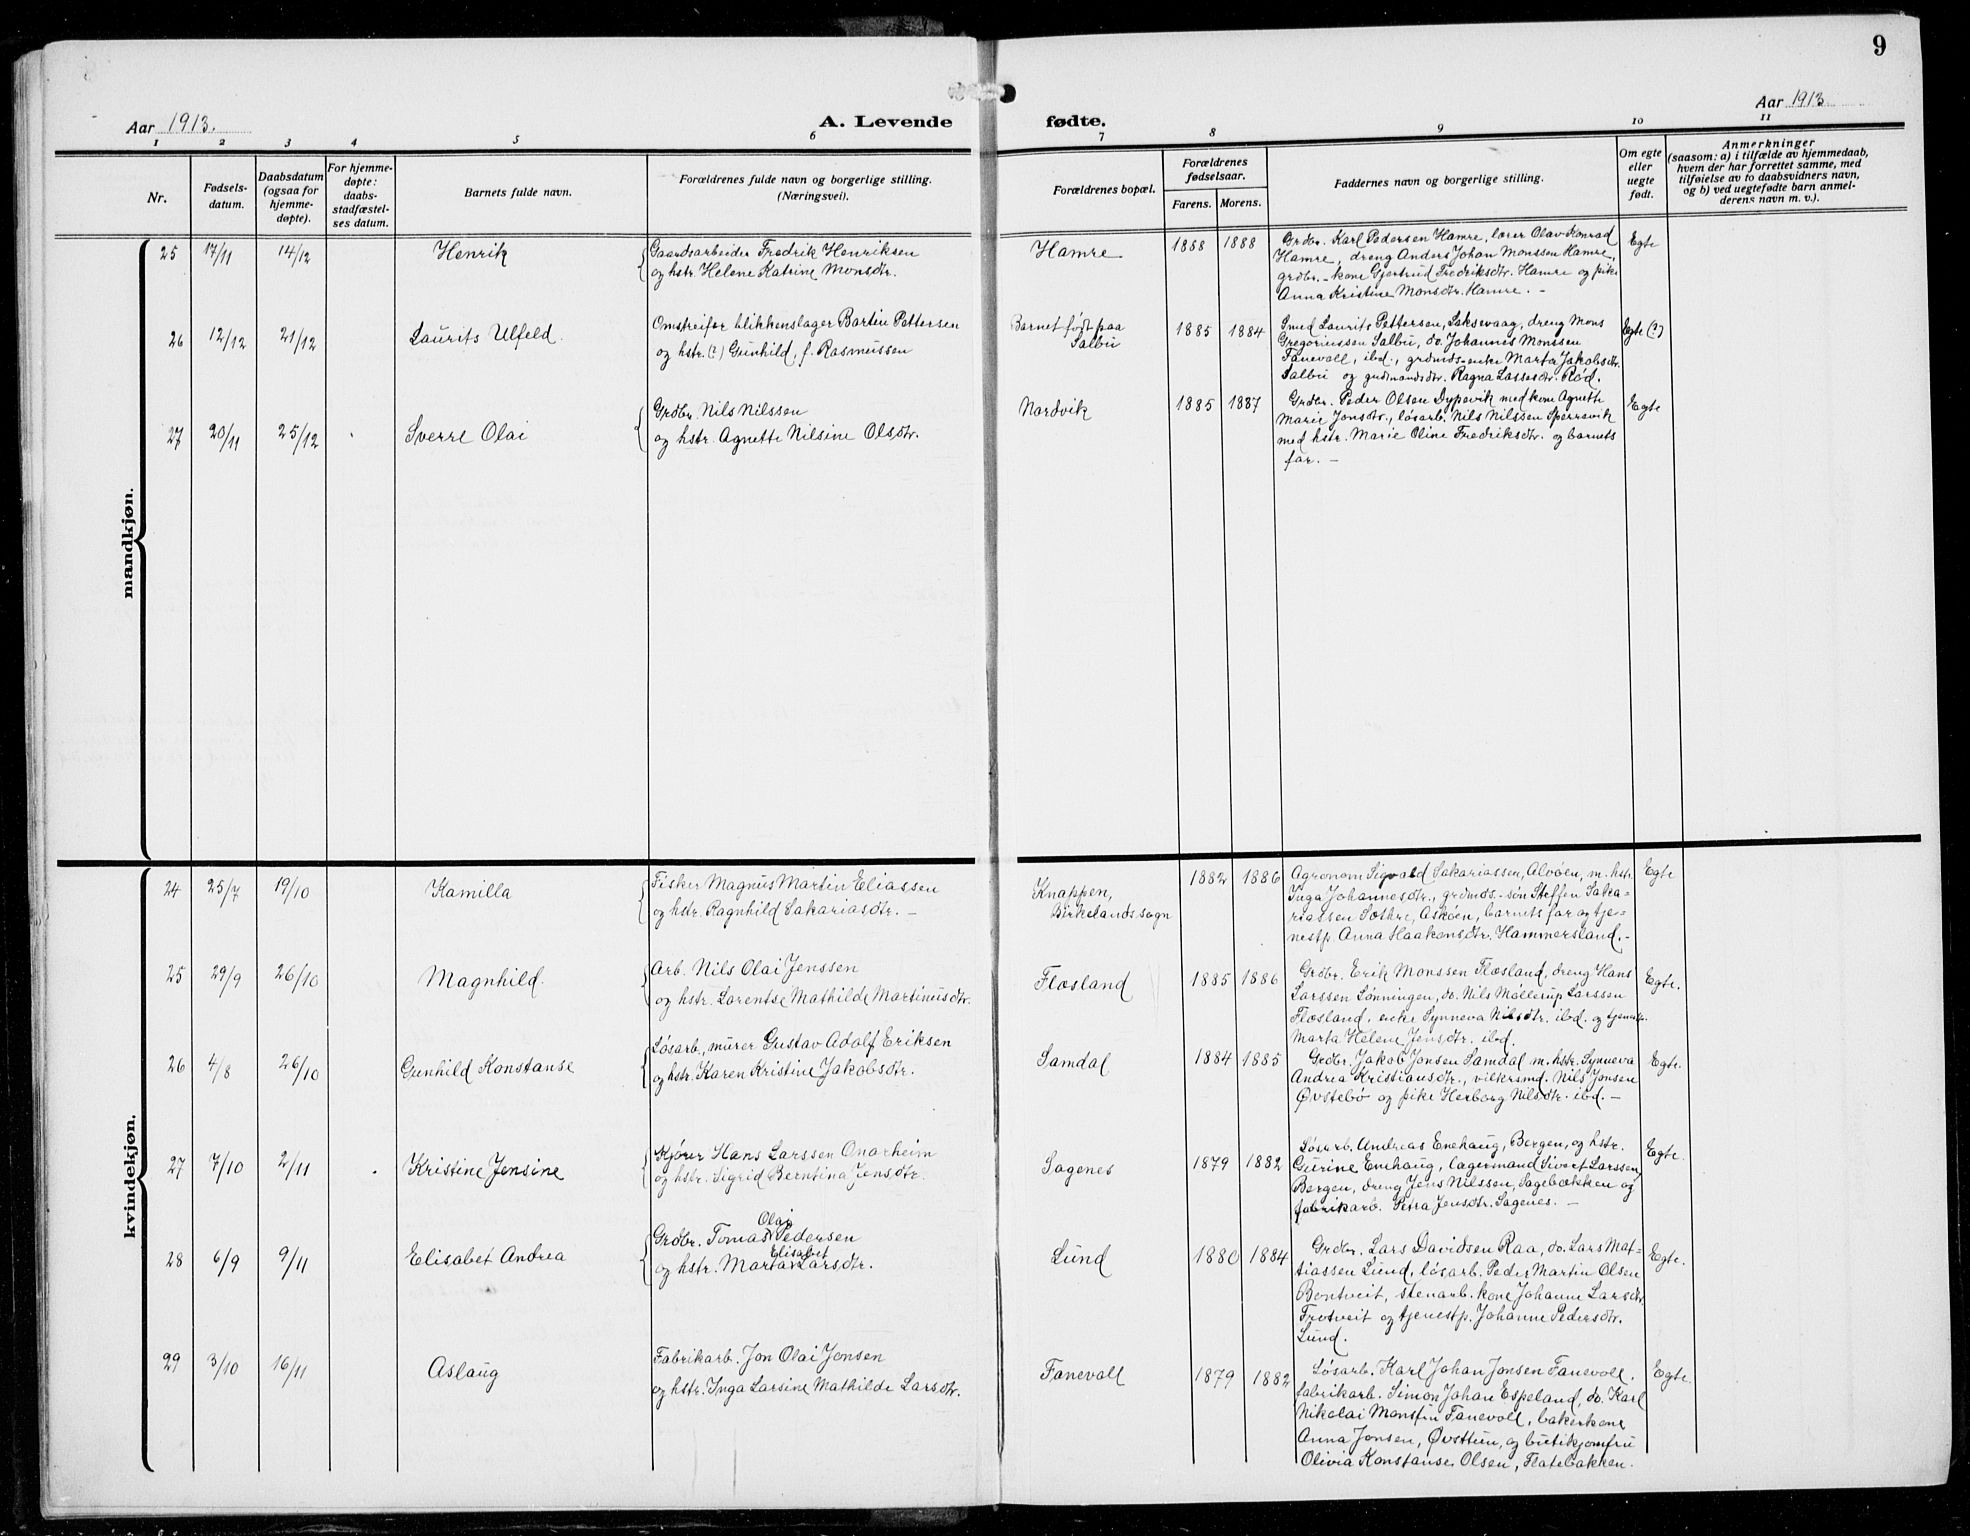 9
Aar 1913.
A. Levende fødte.
Aar 1913
1 2 3 4 5 6 7 8 9 10 11
Nr.
Fødsels-
datum.
Daabsdatum
(ogsaa for
hjemme-
døpte).
For hjemme-
døpte:
daabs-
stadfæstel-
ses datum.
Barnets fulde navn.
Forældrenes fulde navn og borgerlige stilling.
(Næringsvei).
Forældrenes bopæl.
Forældrenes
fødselsaar.
Farens. Morens.
Faddernes navn og borgerlige stilling.
Om egte
eller
uegte
født.
Anmerkninger
(saasom: a) i tilfælde av hjemmedaab,
hvem der har forrettet samme, med
tilføielse av to daabsvidners navn,
og b) ved uegtefødte barn anmel-
derens navn m. v.).
mandkjøn.
25 17/11 14/12 Henrik
Gaardsarbeider Fredrik Henriksen
og hstr. Helene Katrine Monsdtr.
Hamre 1888 1888
Grdbr. Karl Pedersen Hamre, lærer Olav Konrad
Hamre, dreng Anders Johan Monssen Hamre,
grdbr.-kone Gjertrud Fredriksdtr. Hamre og pike
Anna Kristine Monsdtr. Hamre. –
Egte
26 12/12 21/12 Laurits Ulfeld.
Omstreifer blikkenslager Bartin Pettersen
og hstr. (?) Gunhild, f. Rasmussen
Barnet født paa
Salbu
1885 1884
Smed Laurits Pettersen, Saksevaag, dreng Mons
Gregoriussen Salbu, do. Johannes Monssen
Fanevoll, ibd., grdmds-enke Marta Jakobsdtr.
Salbu og grdmandsdtr. Ragna Lassesdtr. Rød.
Egte (?)
27 20/11 25/12 Sverre Olai
Grdbr. Nils Nilssen
og hstr. Agnette Nilsine Olsdtr.
Nordvik 1885 1887
Grdbr. Peder Olsen Dypevik med kone Agnette
Marie Jonsdtr., løsarb. Nils Nilssen Sperrevik
med hstr. Marie Oline Fredriksdtr. og barnets
far. –
Egte
kvindekjøn.
24 25/7 19/10 Kamilla
Fisker Magnus Martin Eliassen
og hstr. Ragnhild Sakariasdtr. –
Knappen,
Birkelands sogn
1882 1886
Agronom Sigvald Sakariassen, Alvøen, m. hstr.
Inga Johannesdtr., grdmds.-søn Steffen Saka-
riassen Sæthre, Askøen, barnets far og tje-
nestp. Anna Haakonsdtr. Hammersland. –
Egte
25 29/9 26/10 Magnhild.
Arb. Nils Olai Jenssen
og hstr. Lorentse Mathilde Martinusdtr.
Flæsland 1885 1886
Grdbr. Erik Monssen Flæsland, dreng Hans
Larssen Lønningen, do. Nils Møllerup Larssen
Flæsland, enke Synneva Nilsdtr. ibd. og tjenestp.
Marta Helene Jensdtr. ibd.
Egte.
26 4/8 26/10 Gunhild Konstanse
Løsarb., murer Gustav Adolf Eriksen
og hstr. Karen Kristine Jakobsdtr.
Samdal 1884 1885
Grdbr. Jakob Jonsen Samdal m. hstr. Synneva
Andrea Kristiansdtr., vilkrsmd. Nils Jonsen
Øvstebø og pike Herborg Nilsdtr. ibd. –
Egte.
27 7/10 2/11 Kristine Jensine
Kjører Hans Larssen Onarheim
og hstr. Sigrid Berntina Jensdtr.
Sagenes 1879 1882
Løsarb. Andreas Enehaug, Bergen, og hstr.
Gurine Enehaug, lagermand Sivert Larssen,
Bergen, dreng Jens Nilssen, Sagebækken og
fabrikarb. Petra Jensdtr. Sagenes. –
Egte.
28 6/9 9/11 Elisabet Andrea
Grdbr. Tomas Olai Pedersen
og hstr. Marta Elisabet Larsdtr.
Lund 1880 1884
Grdbr. Lars Davidsen Raa, do. Lars Mat-
tiassen Lund, løsarb. Peder Martin Olsen
Bontveit, stenarb. kone Johanne Larsdtr.
Frotveit og tjenestp. Johanne Pedersdtr.
Lund.
Egte.
29 3/10 16/11 Aslaug
Fabrikarb. Jon Olai Jonsen
og hstr. Inga Larsine Mathilde Larsdtr.
Fanevoll 1879 1882
Løsarb. Karl Johan Jonsen Fanevoll,
fabrikarb. Simon Johan Espeland, do. Karl
Nikolai Monsen Fanevoll, bakerkone
Anna Jonsen, Øvsttun, og butikjomfru
Olivia Konstanse Olsen, Flatebakken.
Egte.